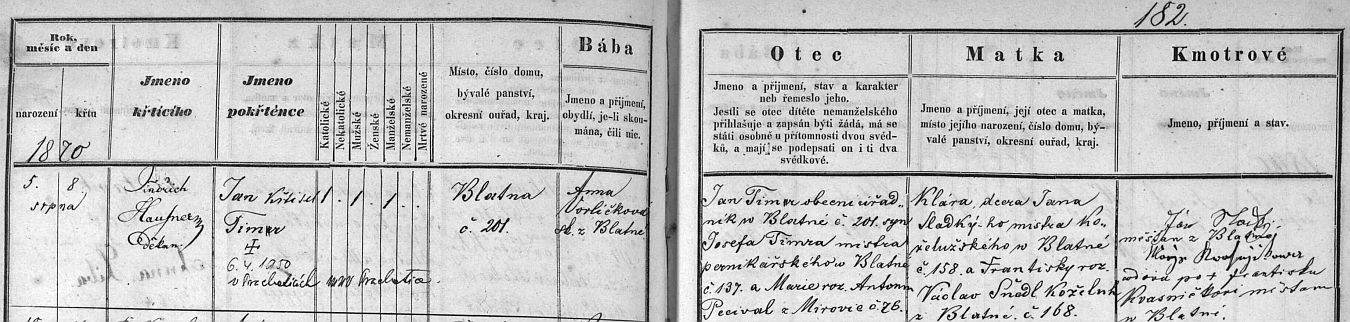 182.
Rok,
měsíc a den
narození
křtu
Jmeno
křtícího
Jmeno
pokřtěnce
Katolické
Nekatolické
Mužské
Ženské
Manželské
Nemanželské
Mrtvě narozené
Místo, číslo domu,
bývalé panství,
okresní ouřad, kraj.
Bába
Jmeno a přijmení,
obydlí, je-li skou-
mána, čili nic.
1870
5. 8.
srpna
Jindřich
Hausner
děkan
Jan Křtitel
Timr
6. 4. 1950
1 . 1 . 1 . .
Blatna
č. 201.
Anna
Vorličková
z Blatné
Otec
Jmeno a přijmení, stav a karakter
neb řemeslo jeho.
Jestli se otec dítěte nemanželského
přihlašuje a zapsán býti žádá, má se
státi osobně u přítomnosti dvou svěd-
ků, a mají se podepsati on i ti dva
svědkové.
Matka
Jmeno a příjmení, její otec a matka,
místo jejího narození, číslo domu, bý-
valé panství, okresní ouřad, kraj.
Kmotrové
Jmeno, příjmení a stav.
Jan Timr obecní úřad-
ník w Blatné č. 201. syn
Josefa Timra mistra
pernikářského w Blatné
č. 137. a Marie roz. Antonin
Pecival z Mirovic č. 76.
Klára, dcera Jana
Sladkýho mistra Ko-
želužského w Blatné
č. 158. a Františky roz.
Václav Šnádl Koželuh
z Blatné. č. 168.
Jan
měšťan z Blatné
wdova po + Františku
Kvasničkovi měšťanu
w Blatné.